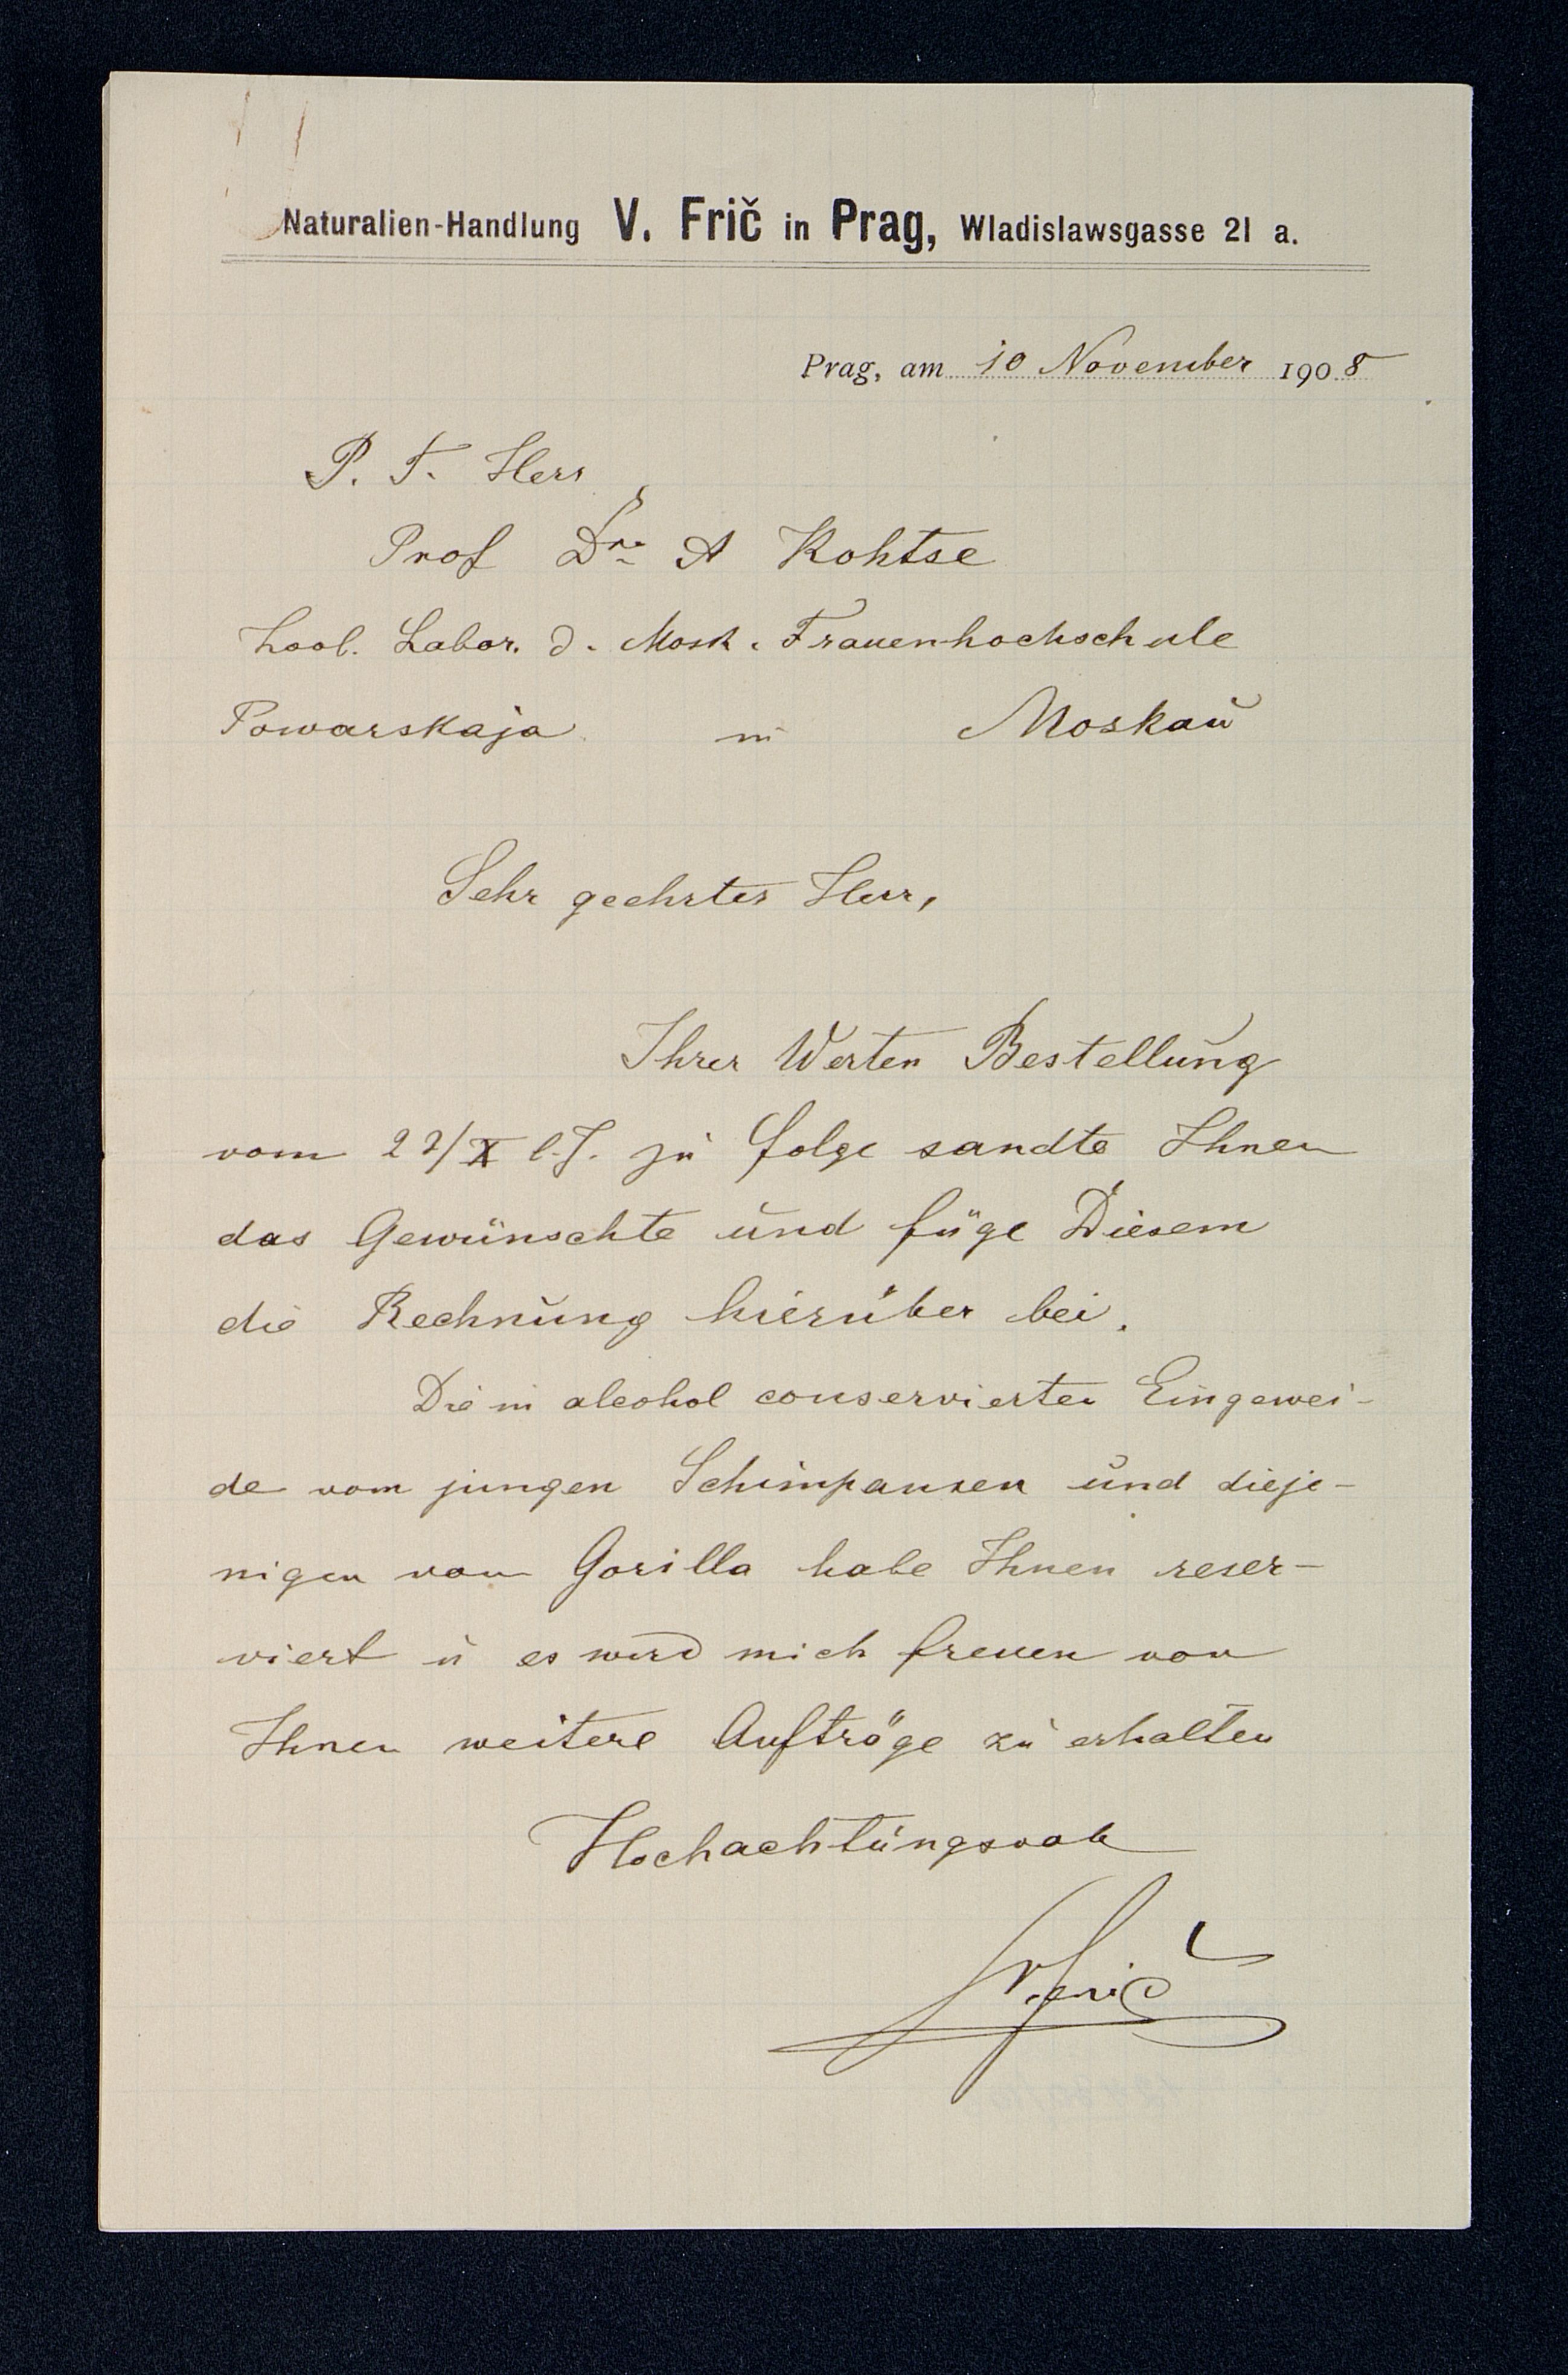 Naturalien-Handlung V. Frič in Prag, Wladislawsgasse 21 a.
Prag, am 10 November 1908
P. T. Herr
Prof Dr. A Kohtse
Zool. Labor. d. Mosk. Frauenhochschule
Powarskaja in Moskau
Sehr geehrter Herr,
Ihrer Werten Bestellung
vom 27/X l.J. zu folge sandte Ihnen
das Gewünschte und füge Diesem
die Rechnung hierüber bei.
Die in alcohol conservierten Eingewei-
de vom jungen Schimpansen und dieje-
nigen vom Gorilla habe Ihnen reser-
viert u es wird mich freuen von
Ihnen weitere Aufträge zu erhalten
Hochachtungsvoll
V. Frič